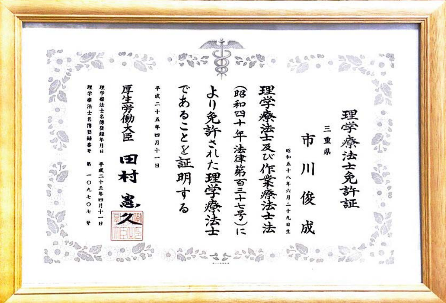 理学療法士免許証
三重県
市川俊成
昭和五十八年六月二十九日生
理学療法士及び作業療法士法
(昭和四十年法律第百三十七号)に
より免許された理学療法士
であることを証明する
平成二十五年四月十一日
厚生労働大臣 田村憲久
理学療法士名簿登録年月日 平成二十五年四月十一日
理学療法士名簿登録番号 第一〇九七〇七号